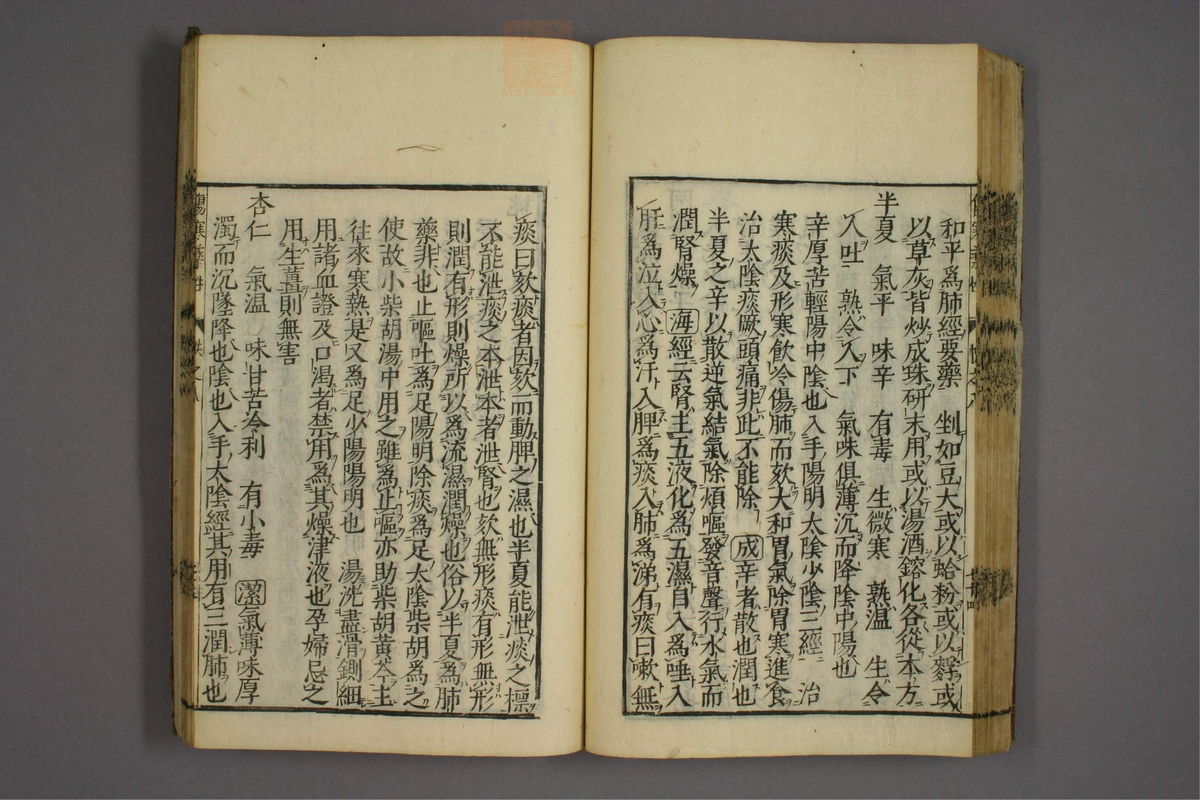 和平爲肺經要藥　剉如豆大或以蛤粉或以麪或
以草灰皆炒成珠研末用或以湯酒鎔化各從本方
半夏　氣平　味辛　有毒　生微寒　熟温　生令
人吐　熟令人下　氣味俱薄沉而降陰中陽也
辛厚苦輕陽中陰也入手陽明太陰少陰三經　治
寒痰及形寒飲冷傷肺而欬大和胃氣除胃寒進食
治太陰痰厥頭痛非此不能除　成辛者散也潤也
半夏之辛以散逆氣結氣除煩嘔發音聲行水氣而
潤腎燥　海經云腎主五液化爲五濕自入爲唾入
肝爲泣入心爲汗入脾爲痰入肺爲涕有痰曰嗽無
痰曰欬痰者因欬而動脾之濕也半夏能泄痰之標
不能泄痰之本泄本者泄腎也欬無形痰有形無形
則潤有形則燥所以爲流濕潤燥也俗以半夏爲肺
藥非也止嘔吐爲足陽明除痰爲足太陰柴胡爲之
使故小柴胡湯中用之雖爲止嘔亦助柴胡黄芩主
往來寒熱是又爲足少陽陽明也　湯洗盡滑剉細
用諸血證及口渴者禁用爲其燥津液也孕婦忌之
用生薑則無害
杏仁　氣温　味甘苦冷利　有小毒　潔氣薄味厚
濁而沉墜降也陰也入手太陰經其用有三潤肺也